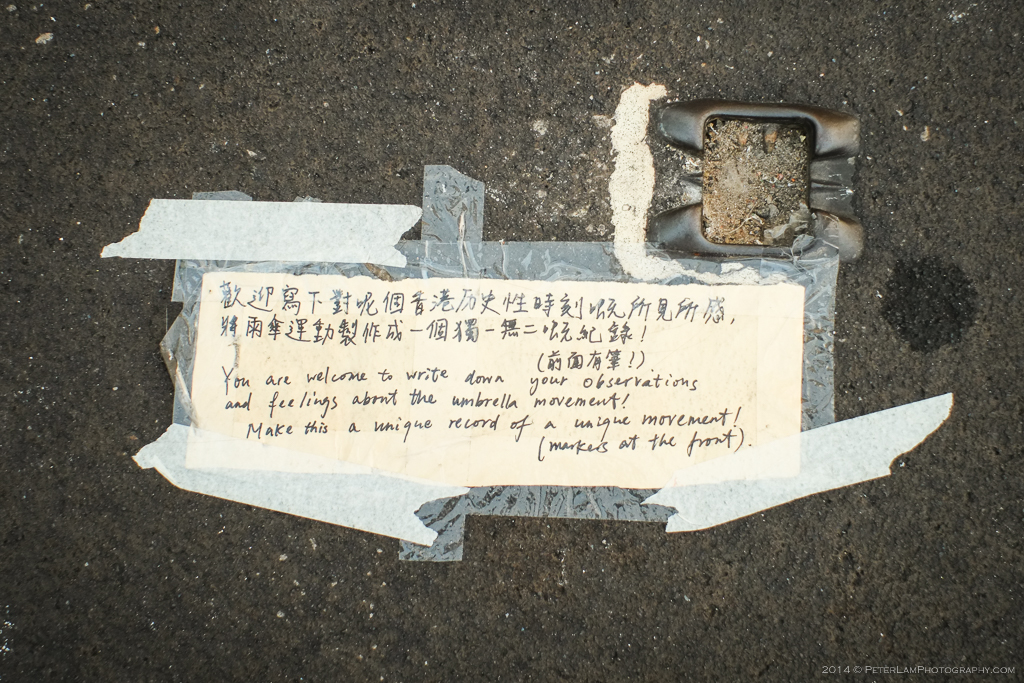 歡迎寫下對呢個香港历史性時刻嘅所見所感,
將雨傘運動製作成一個獨一無二嘅紀錄!
(前面有筆!).
You are welcome to write down your observations
and feelings about the umbrella movement!
Make this a unique record of a unique movement!
(markers at the front).
2014 © PeterLamPhotography.com